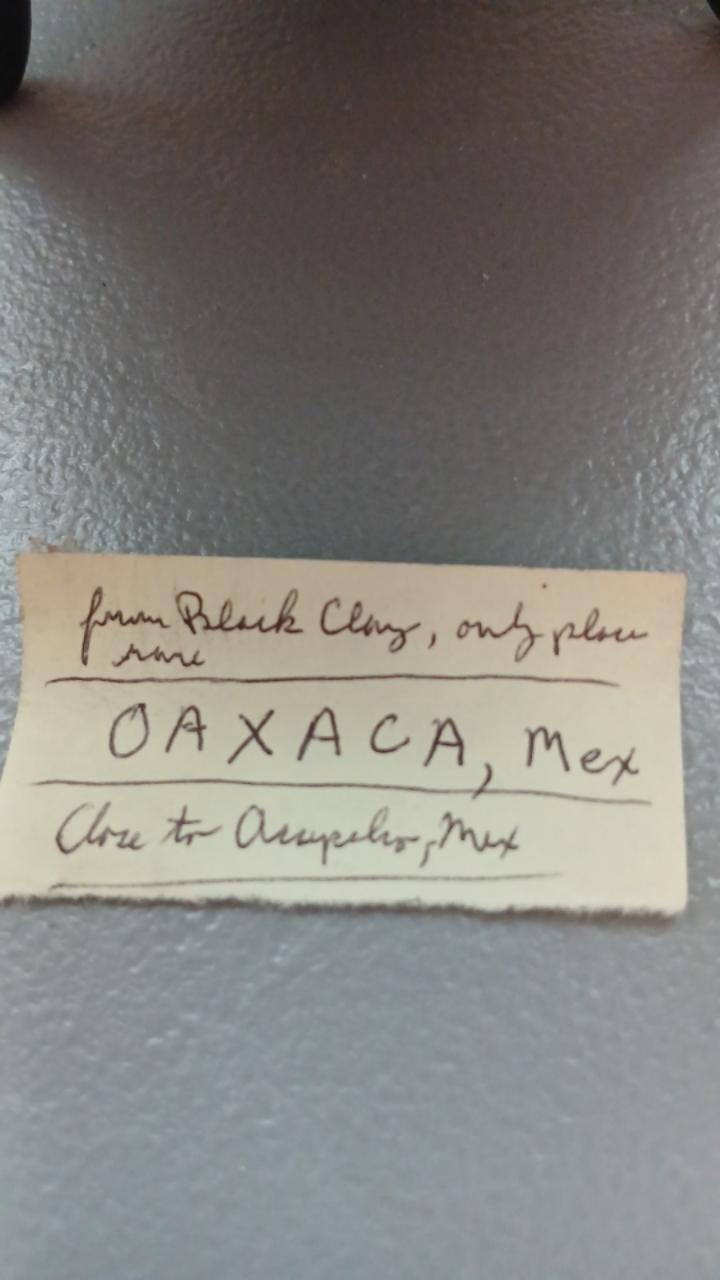 from Black Clay, only place
rare
OAXACA, Mex
Close to Acapulco, Mex